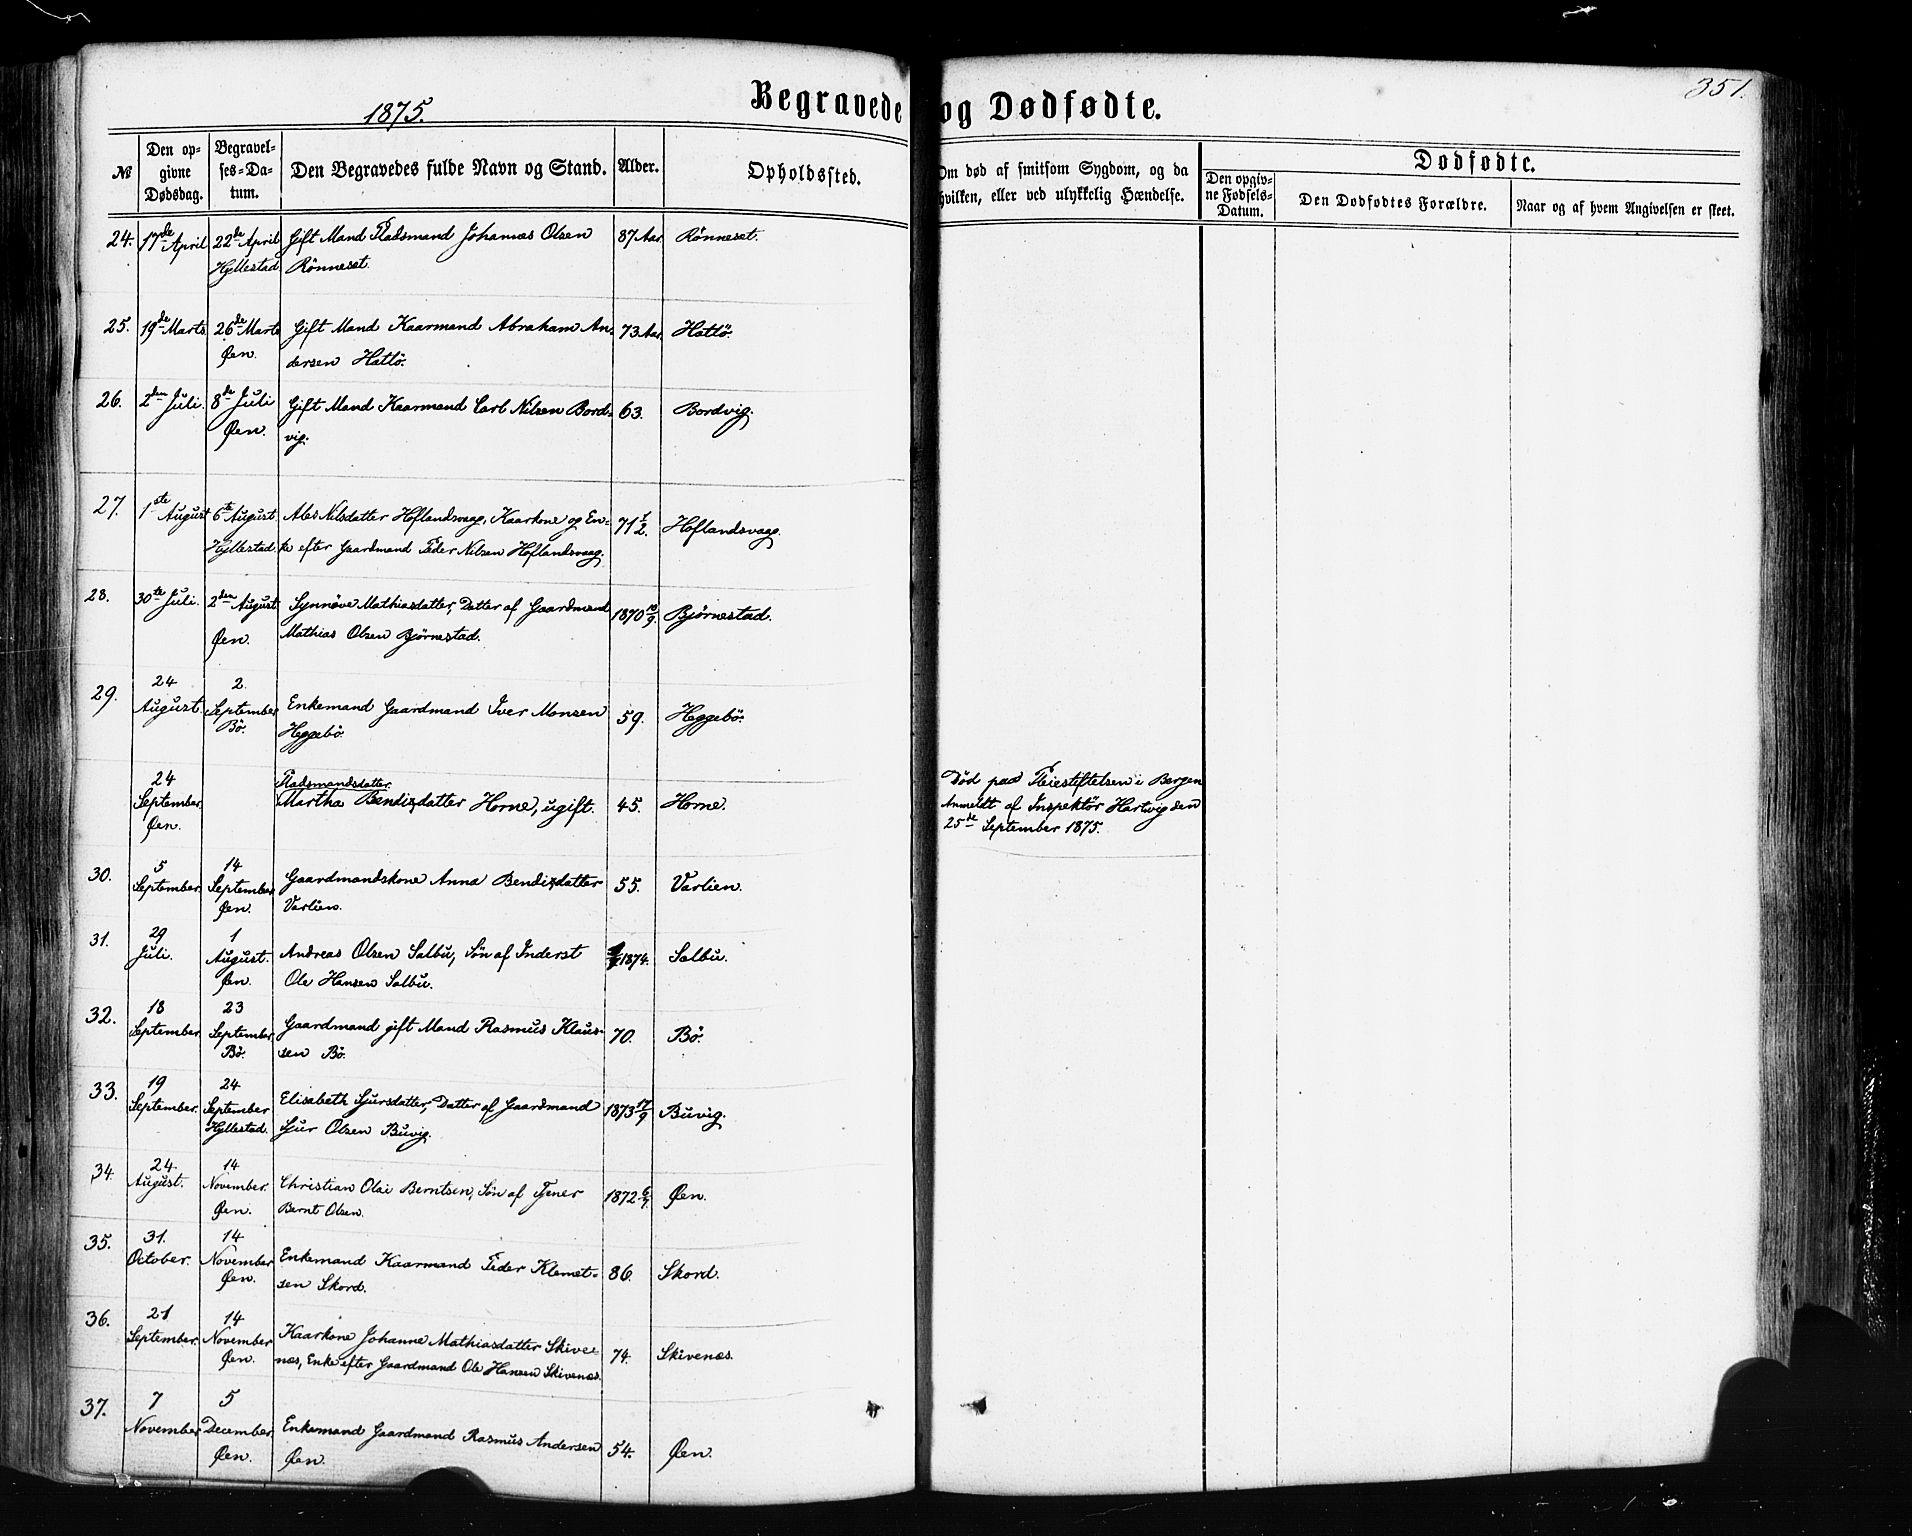 1875.
Begravede og Dødfødte.
351.
№
Den opgivne Dødsdag.
Begravelses-Datum.
Den Begravedes fulde Navn og Stand.
Alder.
Opholdssted.
Om død af smitsom Sygdom, og da hvilken, eller ved ulykkelig Hændelse.
Dødfødte.
Den opgivne Fødsels-Datum.
Den Dødfødtes Forældre.
Naar og af hvem Angivelsen er skeet.
24. 17de April 22de April Gift Mand Pladsmand Johannes Olsen 87 Aar. Rönneset.
Hyllestad Rönneset.
25. 19de Marts 26de Marts Gift Mand Kaarmand Abraham An- 73 Aar. Hattö.
Øen. dersen Hattö.
26. 2den Juli. 8de Juli Gift Mand Kaarmand Carl Nilsen Bord- 63. Bordvig.
Øen. vig.
27. 1ste August 6te August Ales Nilsdatter Hoflandsvaag, Kaarkone og En- 71 1/2. Hoflandsvaag.
Hyllestad. ke efter Gaardmand Peder Nilsen Hoflandsvaag.
28. 30te Juli. 2den August Synnöve Mathiasdatter, Datter af Gaardmand 1870 10/9. Björnestad.
Øen. Mathias Olsen Björnestad.
29. 24 August. 2 September Enkemand Gaardmand Iver Monsen 59. Heggebö.
Bö. Heggebö.
24 September Pladsmandsdatter
Øen. Martha Bendixdatter Horne, ugift. 45. Horne.
Död paa Pleiestiftelsen i Bergen
Anmeldt af Inspektör Hartvig den
25de September 1875.
30. 5 September. 14 September. Gaardmandskone Anna Bendixdatter 55. Varlien.
Øen. Varlien.
31. 29 Juli. 1 August. Andreas Olsen Salbu, Sön af Inderst 1874. Salbu.
Øen. Ole Hansen Salbu.
32. 18 September. 23 September. Gaardmand gift Mand Rasmus Klaus- 70. Bö.
Bö. sen Bö.
33. 19 September. 24 September Elisabeth Sjursdatter, Datter af Gaardmand 1873 17/9 Buvig.
Hyllestad. Sjur Olsen Buvig.
34. 24 August. 14 November. Christian Olai Berntsen, Sön af Tjener 1872 6/7. Øen.
Øen. Bernt Olsen.
35. 31. October. 14 November Enkemand Kaarmand Peder Klemet- 86. Skord.
Øen. sen Skord.
36. 21 September. 14 November Kaarkone Johanne Mathiasdatter Skive- 74. Skivenæs.
Øen. næs, Enke efter Gaardmand Ole Hansen Skivenæs.
37. 7 November 5 December Enkemand Gaardmand Rasmus Andersen 54. Øen.
Øen. Øen.